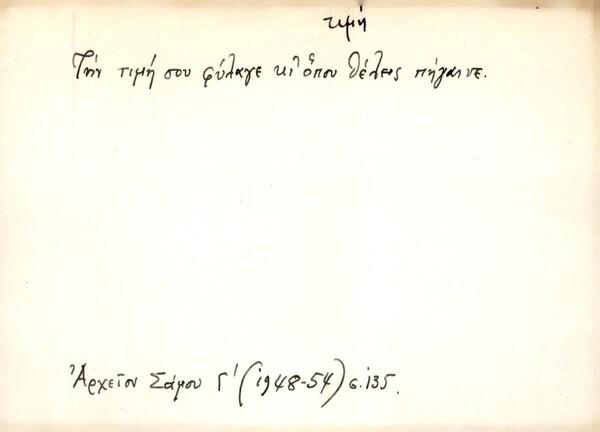 τιμή
Τήν τιμή σου φύλαγε κι ὅπου θέλεις πήγαινε.
Ἀρχεῖον Σάμου Γ' (1948-54) σ. 135.